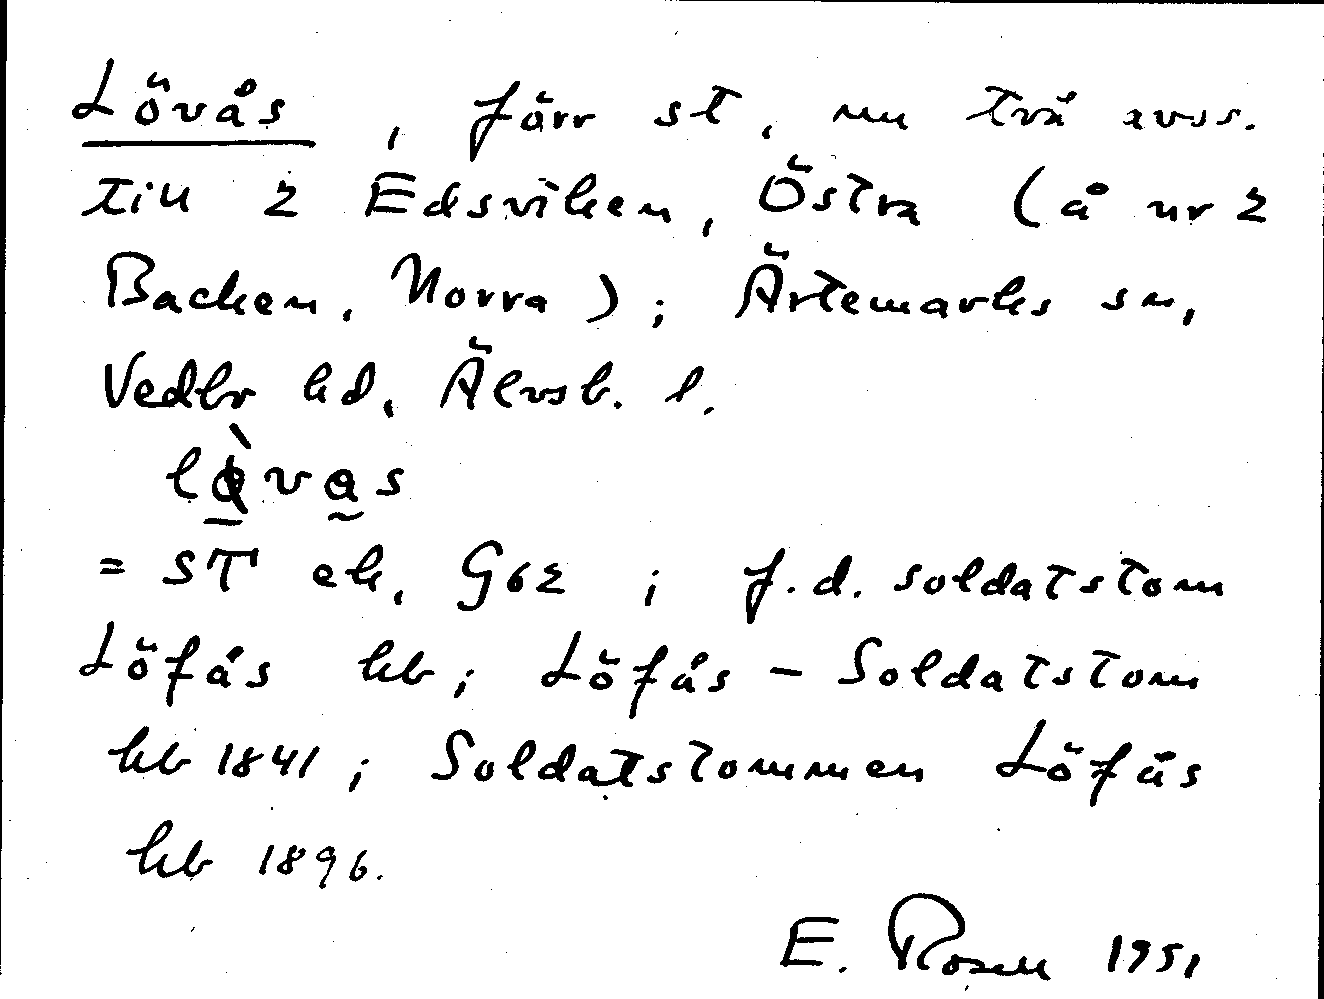 Lövås, förr st, nu två avss.
till 2 Edsviken, Östra (å nr 2
Backen, Norra); Ärtemarks sn,
Vedbo hd, Älvsb. l.
lø̀vas
= ST ek, G62; f.d. soldatstom
Löfås kb; Löfås - Soldatstom
kb 1841; Soldatstommen Löfås
kb 1896.
E. Rosell 1951